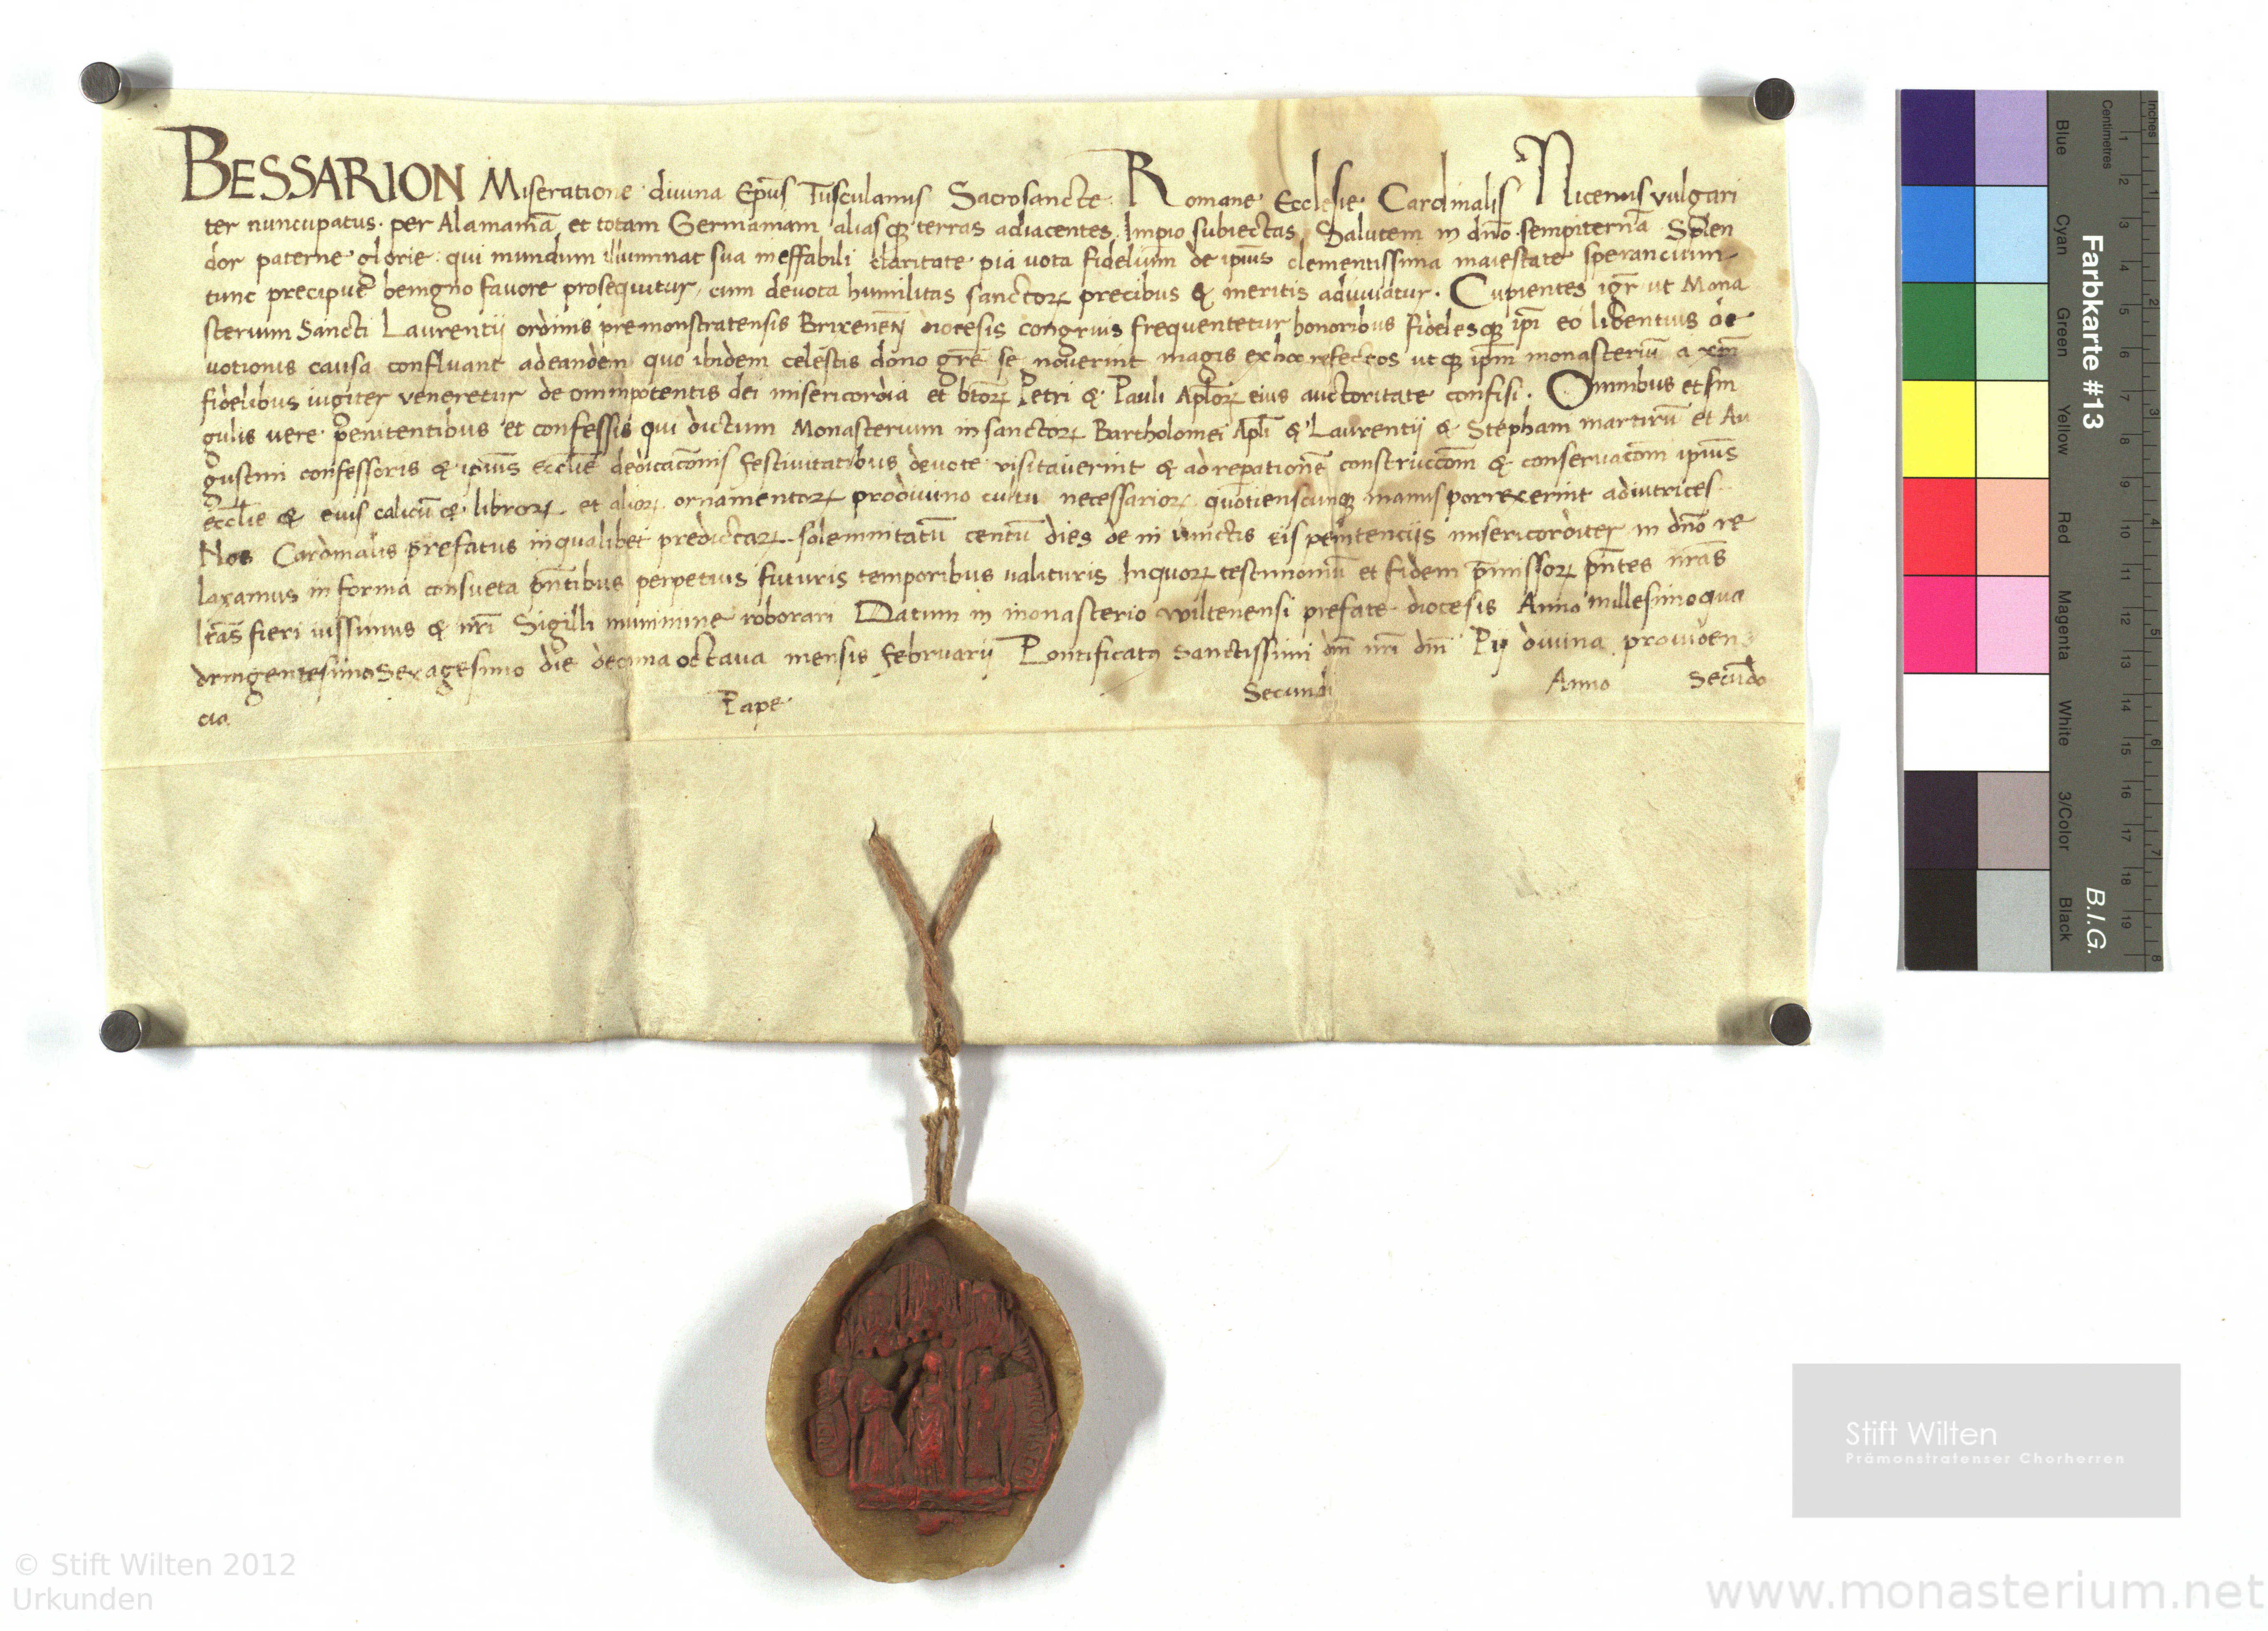 BESSARION Miseratione divina Ep̄us Tusculanus Sacrosancte Romane Ecclesie Cardinalis Nicenus vulgari
ter nuncupatus per Alamaniā et totam Germaniam aliasqꝫ terras adiacentes Impio subiectas Salutem in dn̄o sempiternā Splen
dor paterne glorie qui mundum illuminat sua ineffabili claritate pia vota fidelium de ipsius clementissima maiestate sperancium
tunc precipue benigno favore prosequitur cum devota humilitas sanctoꝝ precibus & meritis adiuvatur. Cupientes igr̄ ut Mona
sterium Sancti Laurentij ordinis premonstratensis Brixineñ diocesis congruis frequentetur honoribus fidelesqꝫ ip̄i eo libentius de
votionis causa confluant adeandem quo ibidem celestis dono gr̄e se noverint magis exhoc refectos utqꝫ ip̄m monasteriū a xp̄i
fidelibus iugiter veneretur de omnipotentis dei misericordia et b̄toꝝ Petri & Pauli Ap̄loꝝ eius auctoritate confisi. Omnibus et sin
gulis vere penitentibus et confessis qui dictum Monasterium in sanctoꝝ Bartholomei Apl̄i & Laurentij & Stephani martirū et Au
gustini confessoris & ip̄ius eccl̄ie dedicac̄onis festivitatibus devote visitaverint & ad reparationē construcc̄om & conservac̄om ip̄ius
eccl̄ie & eius calicū & libroꝝ et alioꝝ ornamentoꝝ prodivino cultu necessarioꝝ quotienscunqꝫ manus porrexerint adiutrices
Nos Cardinalis prefatus inqualibet predictaꝝ solemnitatū centū dies de in iunctis eis penitenciis misericorditer in dn̄o re
laxamus in forma consueta p̄ntibus perpetuis futuris temporibus valituris Inquoꝝ testimoniū et fidem p̄missoꝝ p̄ntes nr̄as
lr̄as fieri iussimus & nr̄i Sigilli munimine roborari Datum in monasterio wiltenensi prefate diocesis Anno millesimoqua
dringentesimoSexagesimo die decima octava mensis februarij Pontificatu Sanctissimi dn̄i nr̄i dn̄i Pij divina providen
cia Pape Secundi Anno Secūdo
Farbkarte #13
B.I.G.
Inches
Centimetres
1 2 3 4 5 6 7 8 9 10 11 12 13 14 15 16 17 18 19
1 2 3 4 5 6 7 8
Blue
Cyan
Green
Yellow
Red
Magenta
White
3/Color
Black
Stift Wilten
Prämonstratenser Chorherren
© Stift Wilten 2012
Urkunden
www.monasterium.net